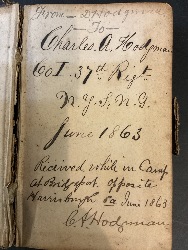 From - L Hodgman
To -
Charles. A. Hodgman
Co I 37th Rigt.
N. Y. S. N. G.
June 1863
Recieved while in Camp
at Bridgeport. opposite
Harrisburgh Pa June 1863
C A Hodgman